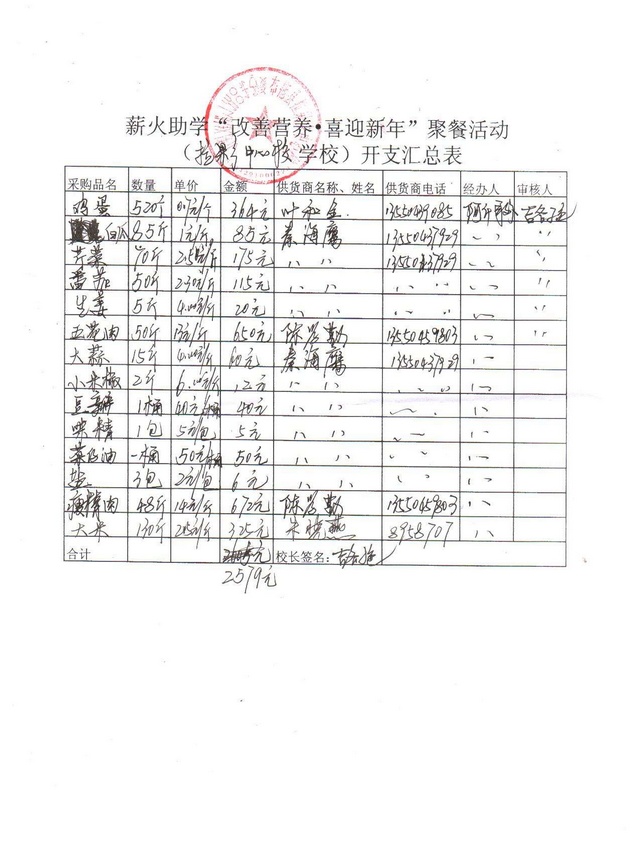 薪火助学“改善营养•喜迎新年”聚餐活动
（ 中心校 学校）开支汇总表
采购品名 数量 单价 金额 供货商名称、姓名 供货商电话 经办人 审核人
鸡蛋 520个 0.7元/个 364元 叶和全 13550439085
白瓜 85斤 1元/斤 85元 秦海鹰 13550437929 〃 〃
芹菜 70斤 2.5元/斤 175元 〃 〃 13550437929 〃 〃
50斤 2.30元/斤 115元 〃 〃 〃 〃 〃 〃
生姜 5斤 4.00元/斤 20元 〃 〃 〃 〃 〃
五花肉 50斤 13元/斤 650元 陈 勤 13550459803 〃 〃
大蒜 15斤 4.00元/斤 60元 秦海鹰 13550437929 〃
小米椒 2斤 6.00元/斤 12元 〃 〃 〃 〃 〃
豆瓣 1桶 40元/桶 40元 〃 〃 〃 〃
味精 1包 5元/包 5元 〃 〃 〃 〃
菜籽油 一桶 50元/桶 50元 〃 〃 〃 〃
盐 3包 2元/包 6元 〃 〃 〃 〃
瘦精肉 48斤 14元/斤 672元 陈 勤 13550459803 〃
大米 130斤 2.5元/斤 325元 朱晓燕 8958707 〃
合计 校长签名：
2579元